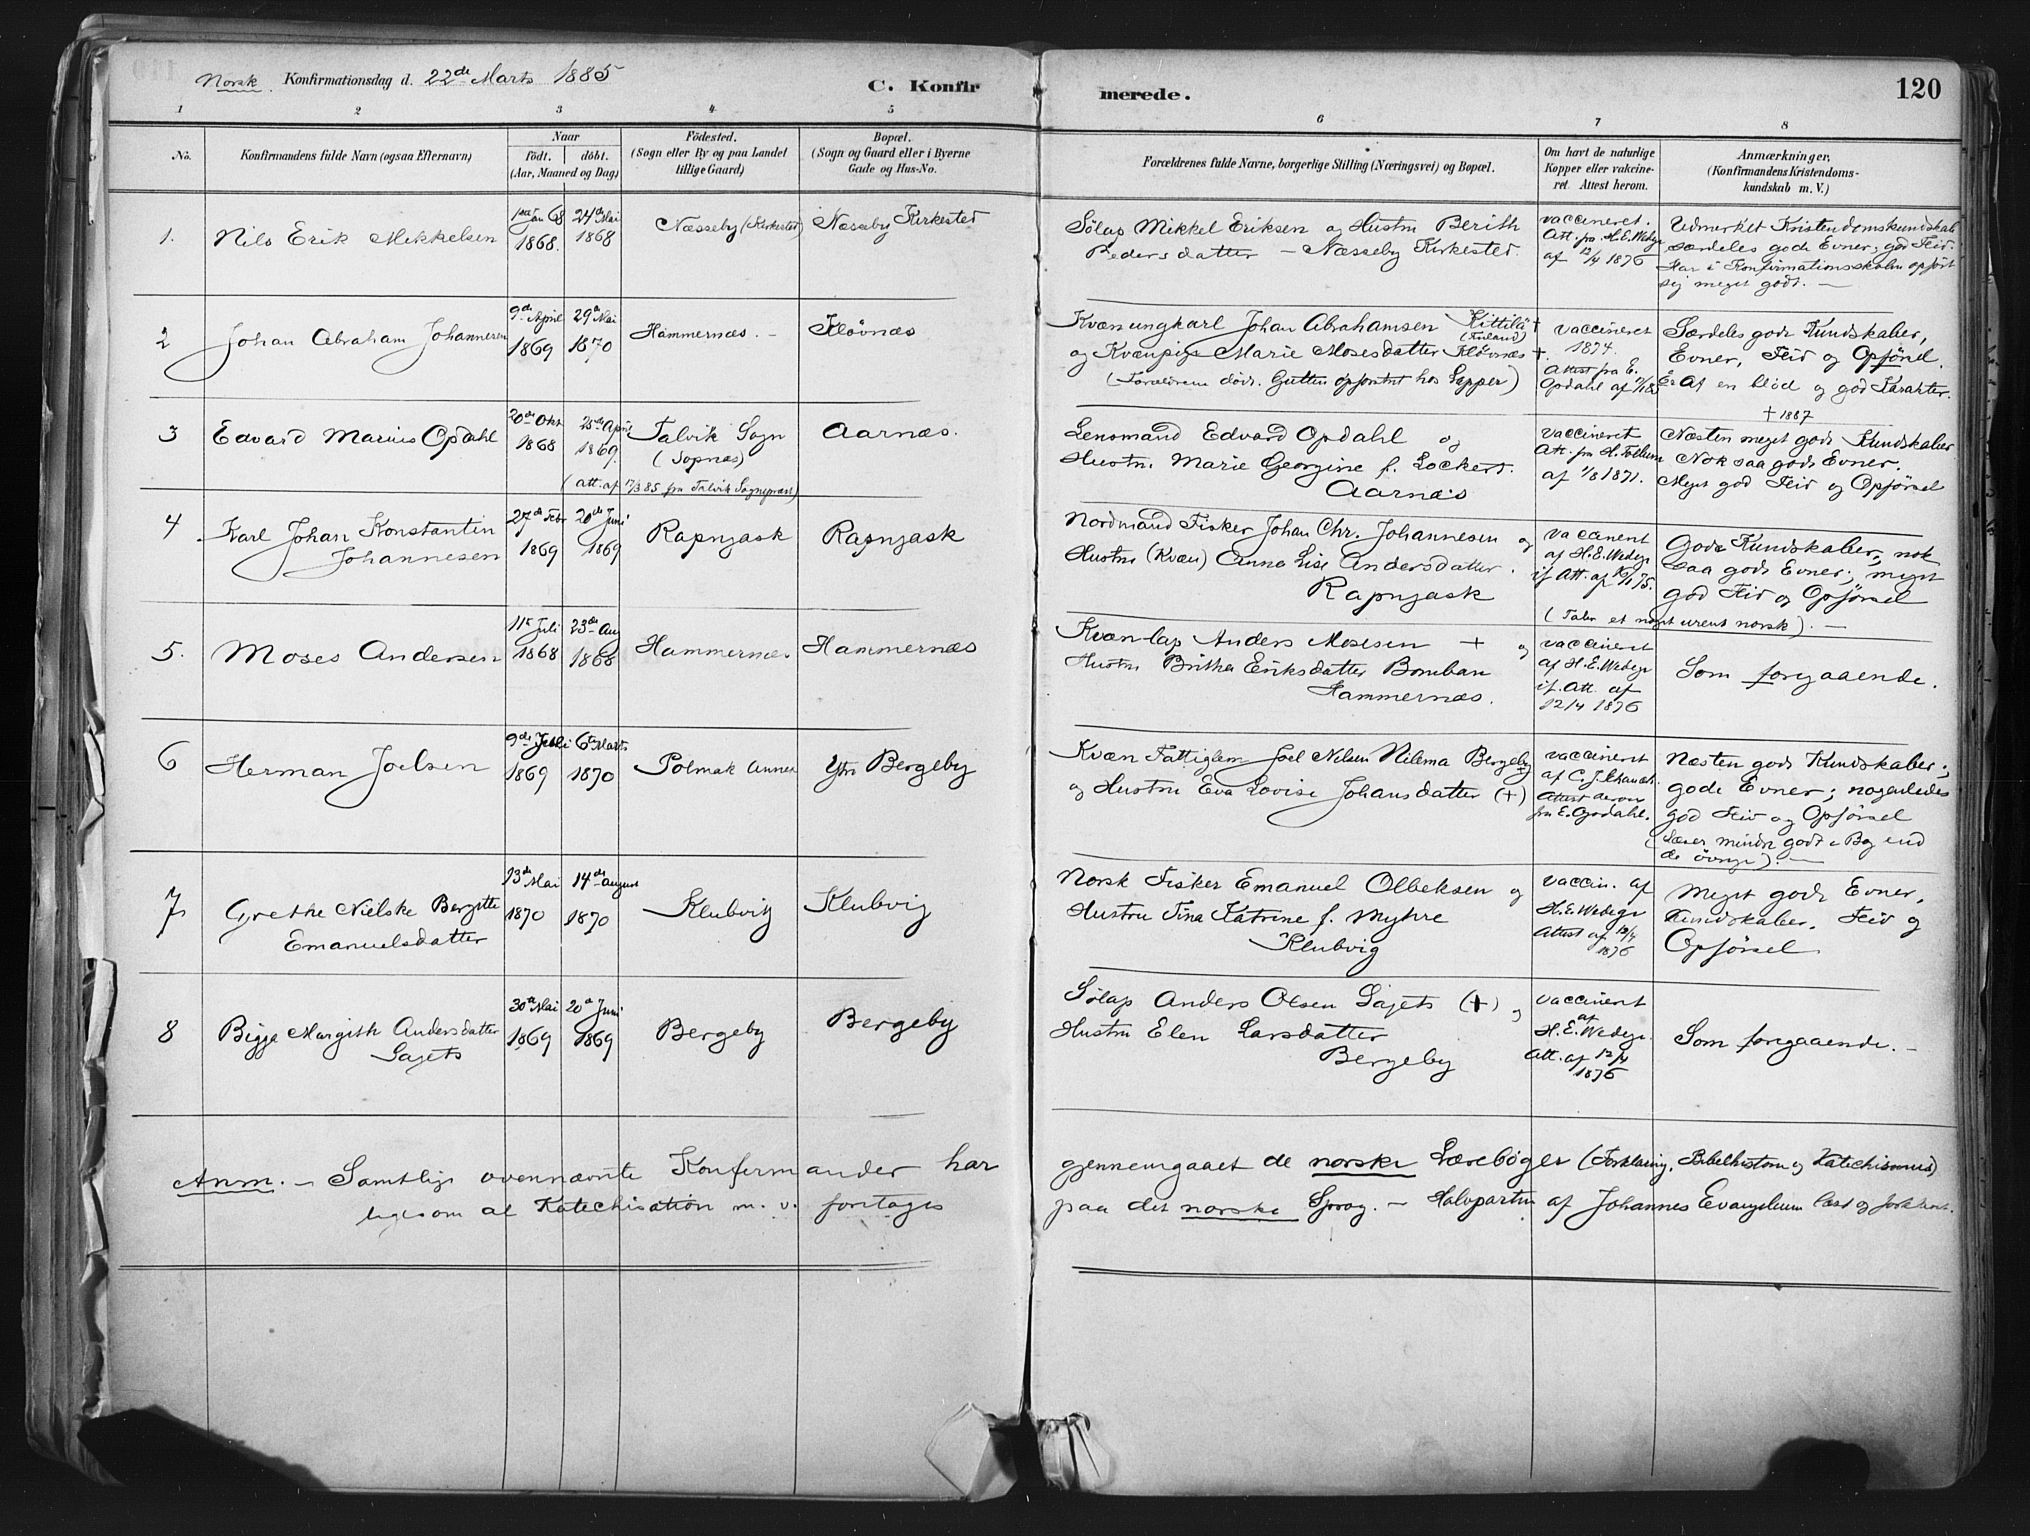 Norsk. Konfirmationsdag d. 22de Marts 1885
C. Konfir
merede.
120
1 2 3 4 5 6 7 8
No.
Konfirmandens fulde Navn (ogsaa Efternavn)
Naar
födt. döbt.
(Aar, Maaned og Dag)
Födested.
(Sogn eller By og paa Landet
tillige Gaard)
Bopæl.
(Sogn og Gaard eller i Byerne
Gade og Hus-No.
Forældrenes fulde Navne, borgerlige Stilling (Næringsvei) og Bopæl.
Om havt de naturlige
Kopper eller vakcine-
ret. Attest herom.
Anmærkninger,
(Konfirmandens Kristendoms-
kundskab m. V.)
1.
Nils Erik Mikkelsen
1868.
24de Mai
1868
Næsseby (Kirkested)
Næsseby Kirkested
Sölap Mikkel Eriksen og Hustru Berith
Pedersdatter – Næsseby Kirkested.
vaccineret.
Att. fra H. E. Wedege
af 12/4 1876
Udmerket Kristendomskundskab
særdeles gode Evner; god Flid.
Har i Konfirmationsskolen opført
sig meget godt. –
2
Johan Abraham Johannesen
9de April
1869
29de Mai
1870
Hammernæs. –
Kløvnæs
Kvæn ungkarl Johan Abrahamsen Kittilä +
(Finland)
og Kvænpige Marie Mosesdatter Kløvnæs +.
(Forældrene døde. Gutten opfostret hos Lapper)
vaccineret
1874.
Attest fra E.
Opdahl af
Særdeles gode Kundskaber,
Evner, Flid og Opførsel.
Er af en blød og god Karakter.
+ 1887
3
Edvard Marius Opdahl
20de Okt
1868
25de April
1869.
Talvik Sogn
(Sopnæs)
(att. af 17/3 85 fra Talvik Sognepræst)
Aarnæs.
Lensmand Edvard Opdahl og
Hustru Marie Georgine f. Lockert.
Aarnæs
vaccineret
Att. fra H.
af 1/8 1871.
Næsten meget gode Kundskaber
Nok saa gode Evner.
Meget god Flid og Opførsel
4
Karl Johan Konstantin
Johannesen
27de Febr
1869
20de Juni
1869
Rapnjask
Rapnjask
Nordmand Fisker Johan Chr. Johannesen og
Hustru (Kvæn) Anna Lise Andersdatter.
Rapnjask
vaccineret
af H. E. Wedege
if Att. af
Gode Kundskaber; nok
saa gode Evner; meget
god Flid og Opførsel
(Taler et noget urent norsk). –
5.
Moses Andersen
11te Juli
1868
23de Aug
1868
Hammernæs
Hammernæs
Kvæn-lap Anders Mosesen + og
Hustru Britha Eriksdatter Bomban
Hammernæs.
vaccineret
af H. E. Wedege
if. Att. af
12/4 1876
Som foregaaende.
6
Herman Joelsen
9de
1869
6te Marts
1870
Polmak Annex
Ytre Bergeby
Kvæn Fattiglem Joel Nilsen Nilema Bergeby
og Hustru Eva Lovise Johansdatter (+)
vaccineret
af C. J.
Attest derom
fra E. Opdahl.
Næsten gode Kundskaber;
gode Evner; nogenledes
god Flid og Opførsel
(Læser mindre godt i Bog end
de øvrige). –
7
Grethe Nielske Bergitte
Emanuelsdatter
13de Mai
1870
14de August
1870
Klubvig
Klubvig
Norsk Fisker Emanuel Olbeksen og
Hustru Tina Katrine f. Myhre
Klubvig
vaccin. af
H. E. Wedege
Attest af 12/4
1876
Meget gode Evner,
Kundskaber, Flid og
Opførsel
8
Bigga Margith Andersdatter
Sajets
30te Mai
1869
20de Juni
1869
Bergeby
Bergeby
Sölap Anders Olsen Sajets (+) og
Hustru Elen Larsdatter
Bergeby
vaccineret
af
H. E. Wedege.
Att. af 12/4
1876
Som foregaaende. –
Anm. – Samtlige ovennævnte Konfirmander har gjennemgaaet de norske Lærebøger (Forklaring, Bibelhistorie og Katechismus)
ligesom al Katechisation m. v. foretages paa det norske Sprog. – Halvparten af Johannes Evangelium læst og forklaret.